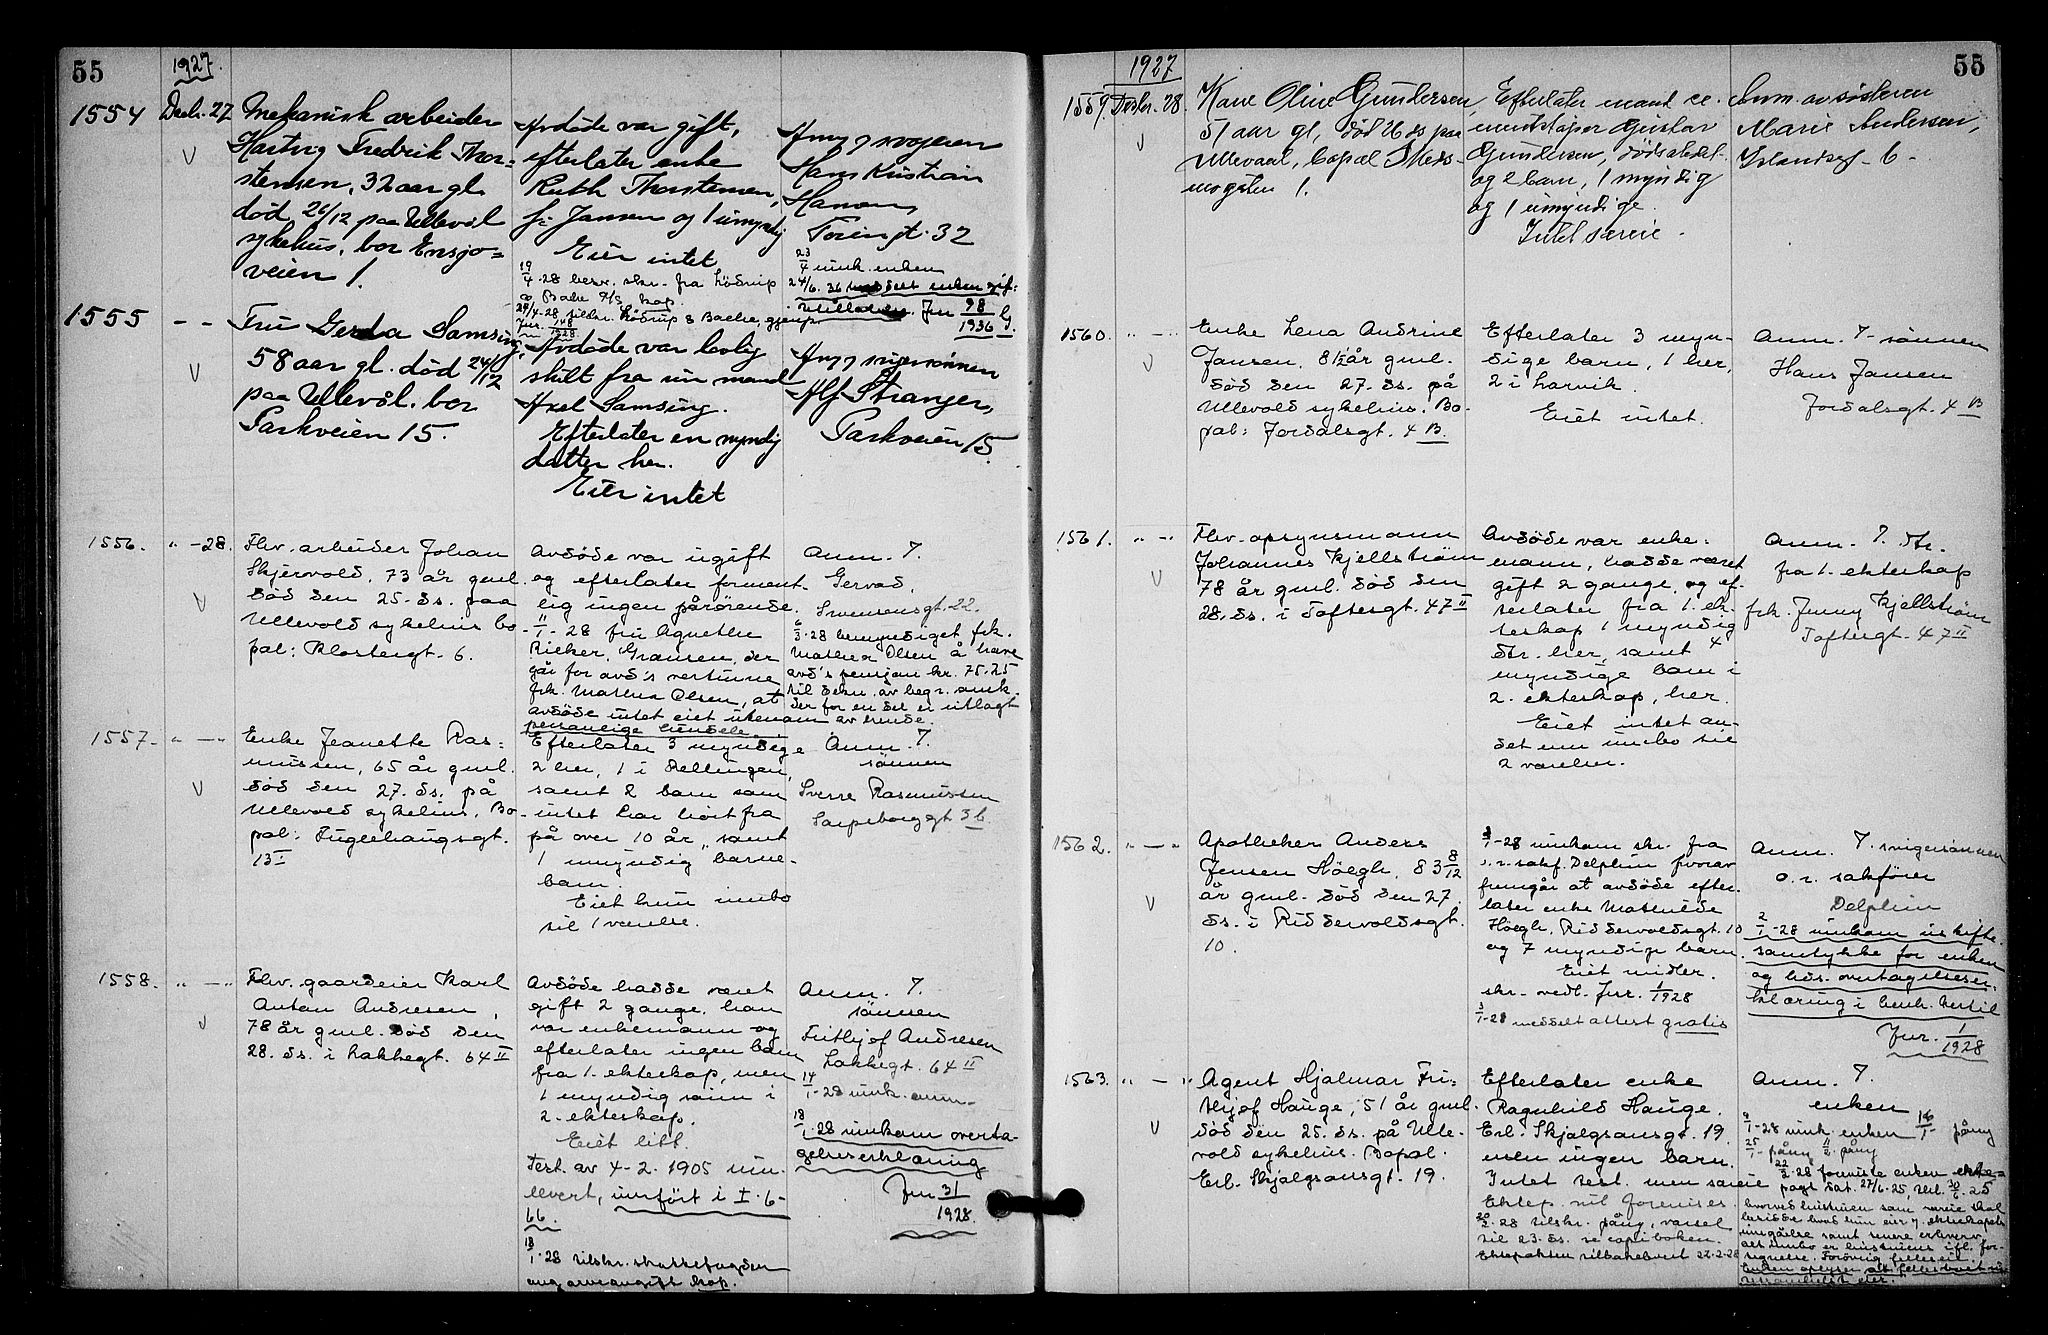 55
1927.
1554
Decbr. 27
Mekanisk arbeider
Hartvig Fredrik Thor=
stensen, 32 aar gl.
død 26/12 paa Ullevål
sykehus, bor Ensjø=
veien 1.
Avdøde var gift,
efterlater enke
Ruth Thorstensen,
f: Jansen og 1 umyndig
Eier intet
19/4-28 besv. skr. fra Lödrup
& Bache A/S kop.
24/4-28 tilskr. Lödrup & Bache, gjenp.
Jur. 148/1928
Anm 7 svogeren
Hans Kristian
Hansen,
Toiengt. 32
23/4 innk. enken
24/6. 36 meddelt enken gif=
tetilladelse. Jur 98/1936 G.
1555
- -
Fru Gerda Samsing,
58 aar gl. død 24/12
paa Ullevål. bor
Parkveien 15.
Avdöde var lovlig
skilt fra sin mand
Axel Samsing.
Efterlater en myndig
datter her.
Eier intet
Anm 7 svigersønnen
Alf Stranger,
Parkveien 15.
1556.
" -28.
Fhv. arbeider Johan
Skjervold, 73 år gml.
död den 25. ds. paa
Ullevold sykehus bo-
pæl: Klostergt. 6.
Avdöde var ugift
og efterlater forment-
lig ingen pårörende.
11/1-28 fru Agnethe
Ricker, Grænsen, der
går for avd's vertinne
frk. Mathea Olsen, at
avdöde intet eiet utenom
personlige eiendele.
Anm. 7.
Gervad,
Svensensgt. 22.
6/3-28 bemyndiget frk.
Mathea Olsen å have
avd's pensjon kr. 75.25
til dekn. av begr. omk.
der for en del er utlagt
av hende.
1557.
" — "
Enke Jeanette Ras=
mussen, 65 år gml.
död den 27. ds. på
Ullevold sykehus. Bo-
pæl: Fuglehaugsgt.
13 I
Efterlater 3 myndige
2 her, 1 i Kellingen,
samt 2 barn som
intet har hört fra
på over 10 år, samt
1 umyndig barne-
barn.
Eiet kun innbo
til 1 værelse.
Anm. 7.
sönnen
Sverre Rasmussen
Sarpsborggt 3 b.
1558.
" — "
Fhv. gaardeier Karl
Anton Andresen,
78 år gml. död den
28. ds. i Lakkegt. 64 II
Avdöde hadde været
gift 2 gange, han
var enkemann og
efterlater ingen barn
fra 1. ekteskap, men
1 myndig sönn i
2. ekteskap.
Eiet litt.
Test. av 4-2. 1905 inn-
levert, innfört i I. 6-
66.
18/1-28 tilskr. skattefogden
ang arveavgift kop.
Anm. 7.
sönnen
Fritjof Andresen
Lakkegt. 64 II
14/1-28 innk. anm-
18/1-28 innkom overta-
gelseserklæring
Jur 31/1928.
55
1927
1559.
Decbr. 28.
Kare Oline Gundersen,
51 aar gl, død 26 ds paa
Ullevaal, bopæl Meds-
mogaten 1.
Efterlater mand
Gustav
Gundersen, dødsstedet
og 2 barn, 1 myndig
og 1 umyndige.
Intet særeie.
Anm. av søsteren
Marie Andersen,
Islandsgt - 6 -
1560.
" — "
Enke Lena Andrine
Jansen. 81 1/2 år gml.
död den 27. ds. på
Ullevold sykehus. Bo-
pæl: Jordalsgt. 4 B.
Efterlater 3 myn-
dige barn, 1 her,
2 i Larvik.
Eiet intet.
Anm. 7 - sönnen
Hans Jansen
Jordalsgt. 4 B
1561.
" — "
Fhv. opsynsmann
Johannes Kjellström
78 år gml. död den
28. ds. i Toftesgt. 47 II
Avdöde var enke-
mann, hadde været
gift 2 gange, og ef-
terlater fra 1. ek-
teskap 1 myndig
dtr. her, samt 4
myndige barn i
2. ekteskap, her.
Eiet intet an-
det enn innbo til
2 værelser.
Anm. 7. dtr.
fra 1. ekteskap
frk. Jenny Kjellström
Toftesgt. 47 II
1562.
" — "
Apotheker Anders
Jensen Höegh, 83 8/12
år gml. död den 27.
ds. i Riddervoldsgt.
10.
2/1-28 innkom skr. fra
o. r. sakf. Delphin hvorav
fremgår at avdöde efter-
later enke Mathilde
Höegh, Riddervoldsgt. 10
og 7 myndige barn.
Eiet midler.
skr. vedl. Jur. 1/1928
3/1-28 meddelt attest gratis
Anm. 7. svigersönnen
o. r. sakförer
Delphin
2/1-28 innkom uskifte-
samtykke for enken
og hds. overtagelseser-
klæring i henh. hertil
Jur. 1/1928
1563.
" — "
Agent Hjalmar Fri-
thjof Hauge, 51 år gml.
död den 25. ds. på Ulle-
vold sykehus. Bopæl:
Erl. Skjalgsønsgt. 19.
Efterlater enke
Ragnhild Hauge,
Erl. Skjalgsønsgt. 19
men ingen barn.
Intet test. men særeie
Ektep. vil forevises.
20/2-28 tilskr. påny, varsel
til 23. ds. se copiboken.
Ektepakten tilbakelevert 22-2-28
Anm. 7.
enken
9/1-28 innk. enken 16/1- påny
25/1- påny 11/2 påny
22/2-28 foreviste enken ekte=
pagt dat. 27/6-25, tlest. 30/6-25
hvorved hustruen som særeie skal
besidde hvad hun eier v. ekteskapets
inngåelse samt senere erhverv,